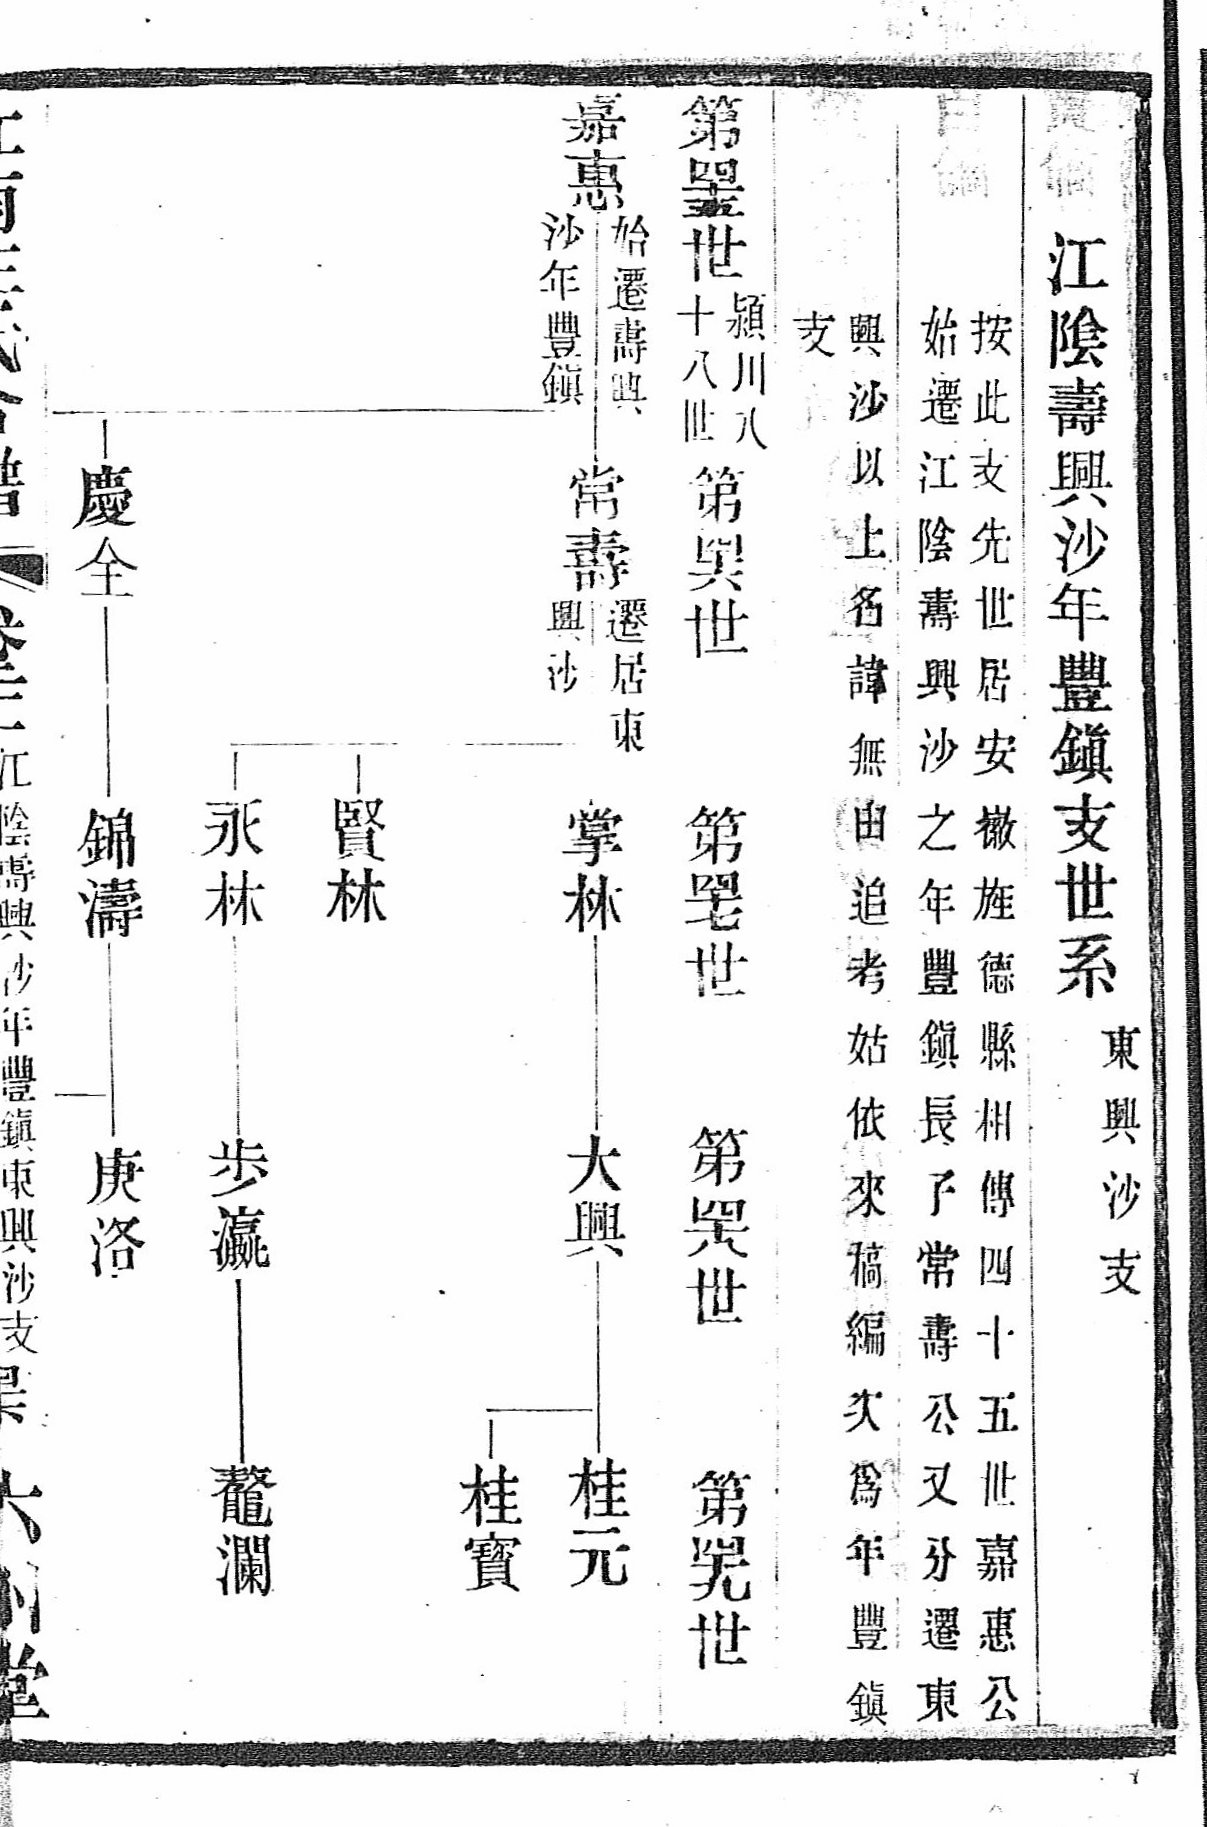 江陰壽興沙年豐鎭支世系
東興沙支
按此支先世居安徽旌德縣相傳四十五世嘉惠公
始遷江陰壽興沙之年豐鎭長子常壽公又分遷東
興沙以上名諱無由追考姑依來稿編次爲年豐鎭
支
第罣世
潁川八
十八世
第𦊰世
第𦊱世
第𦊲世
第𦊳世
嘉惠
始遷壽興
沙年豐鎭
常壽
遷居東
興沙
掌林
大興
桂元
桂寶
賢林
永林
步瀛
鼇瀾
慶全
錦濤
庚洛
江陰壽興沙年豐鎭東興沙支